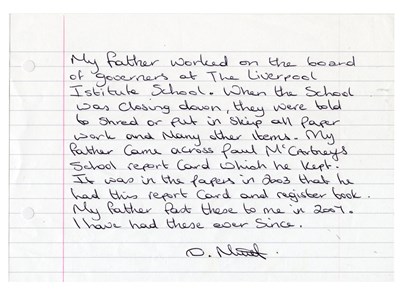 My father worked on the board
of governers at The Liverpool
Istitute School. When the School
was closing down, they were told
to shred or put in skip all paper
work and Many other items. My
father came across Paul McCartney's
School report Card which he kept.
It was in the papers in 2003 that he
had this report Card and register book.
My father past these to me in 2007.
I have had these ever since.
D.